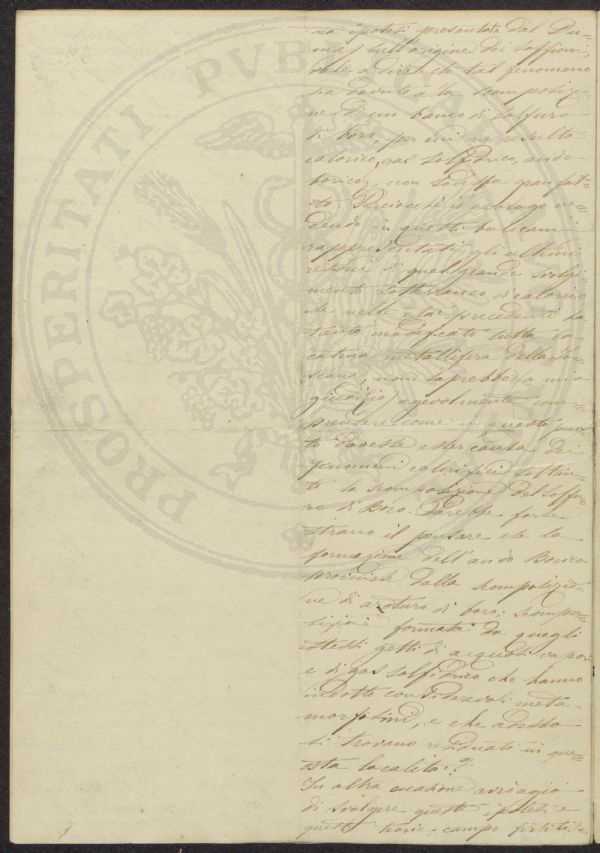 na ipotesi presentata dal Du-
mas sull'origine dei soffioni,
vale a dire che tal fenomeno
sia dovuto a la scomposizio-
ne di un banco di solfuro
di boro, per cui ne resulta
calorico, gas solfidrico, acido
borico, non sodisfa gran fat-
to. Perciocchè il geologo ve-
dendo in questi bulicami
rappresentati gli ultimi
residui di quel grande svolgi-
mento sotterraneo di calorico
che nelle età precedenti ha
tanto modificato tutta la
catena metallifera della To-
scana, non saprebbe (a mio
giudizio) agevolmente com-
prendere come in questo pun-
to dovesse esser causa dei
fenomeni caloriferi soltan-
to la scomposizione del solfu-
ro di Boro. Sarebbe forse
strano il pensare che la
formazione dell'acido Borico
provenisse dalla scomposizio-
ne di azoturo di boro; scompo-
sizione formata da quegli
stessi getti di acquosi vapori
e di gas solfidrico che hanno
indotto considerevoli meta-
morfosimi, e che adesso
si trovano residuati in que-
sta località?
In altra occasione avrò agio
di svolgere queste ipotesi e
queste teorie, campo fertilis-
PROSPERITATI PVBLICAE